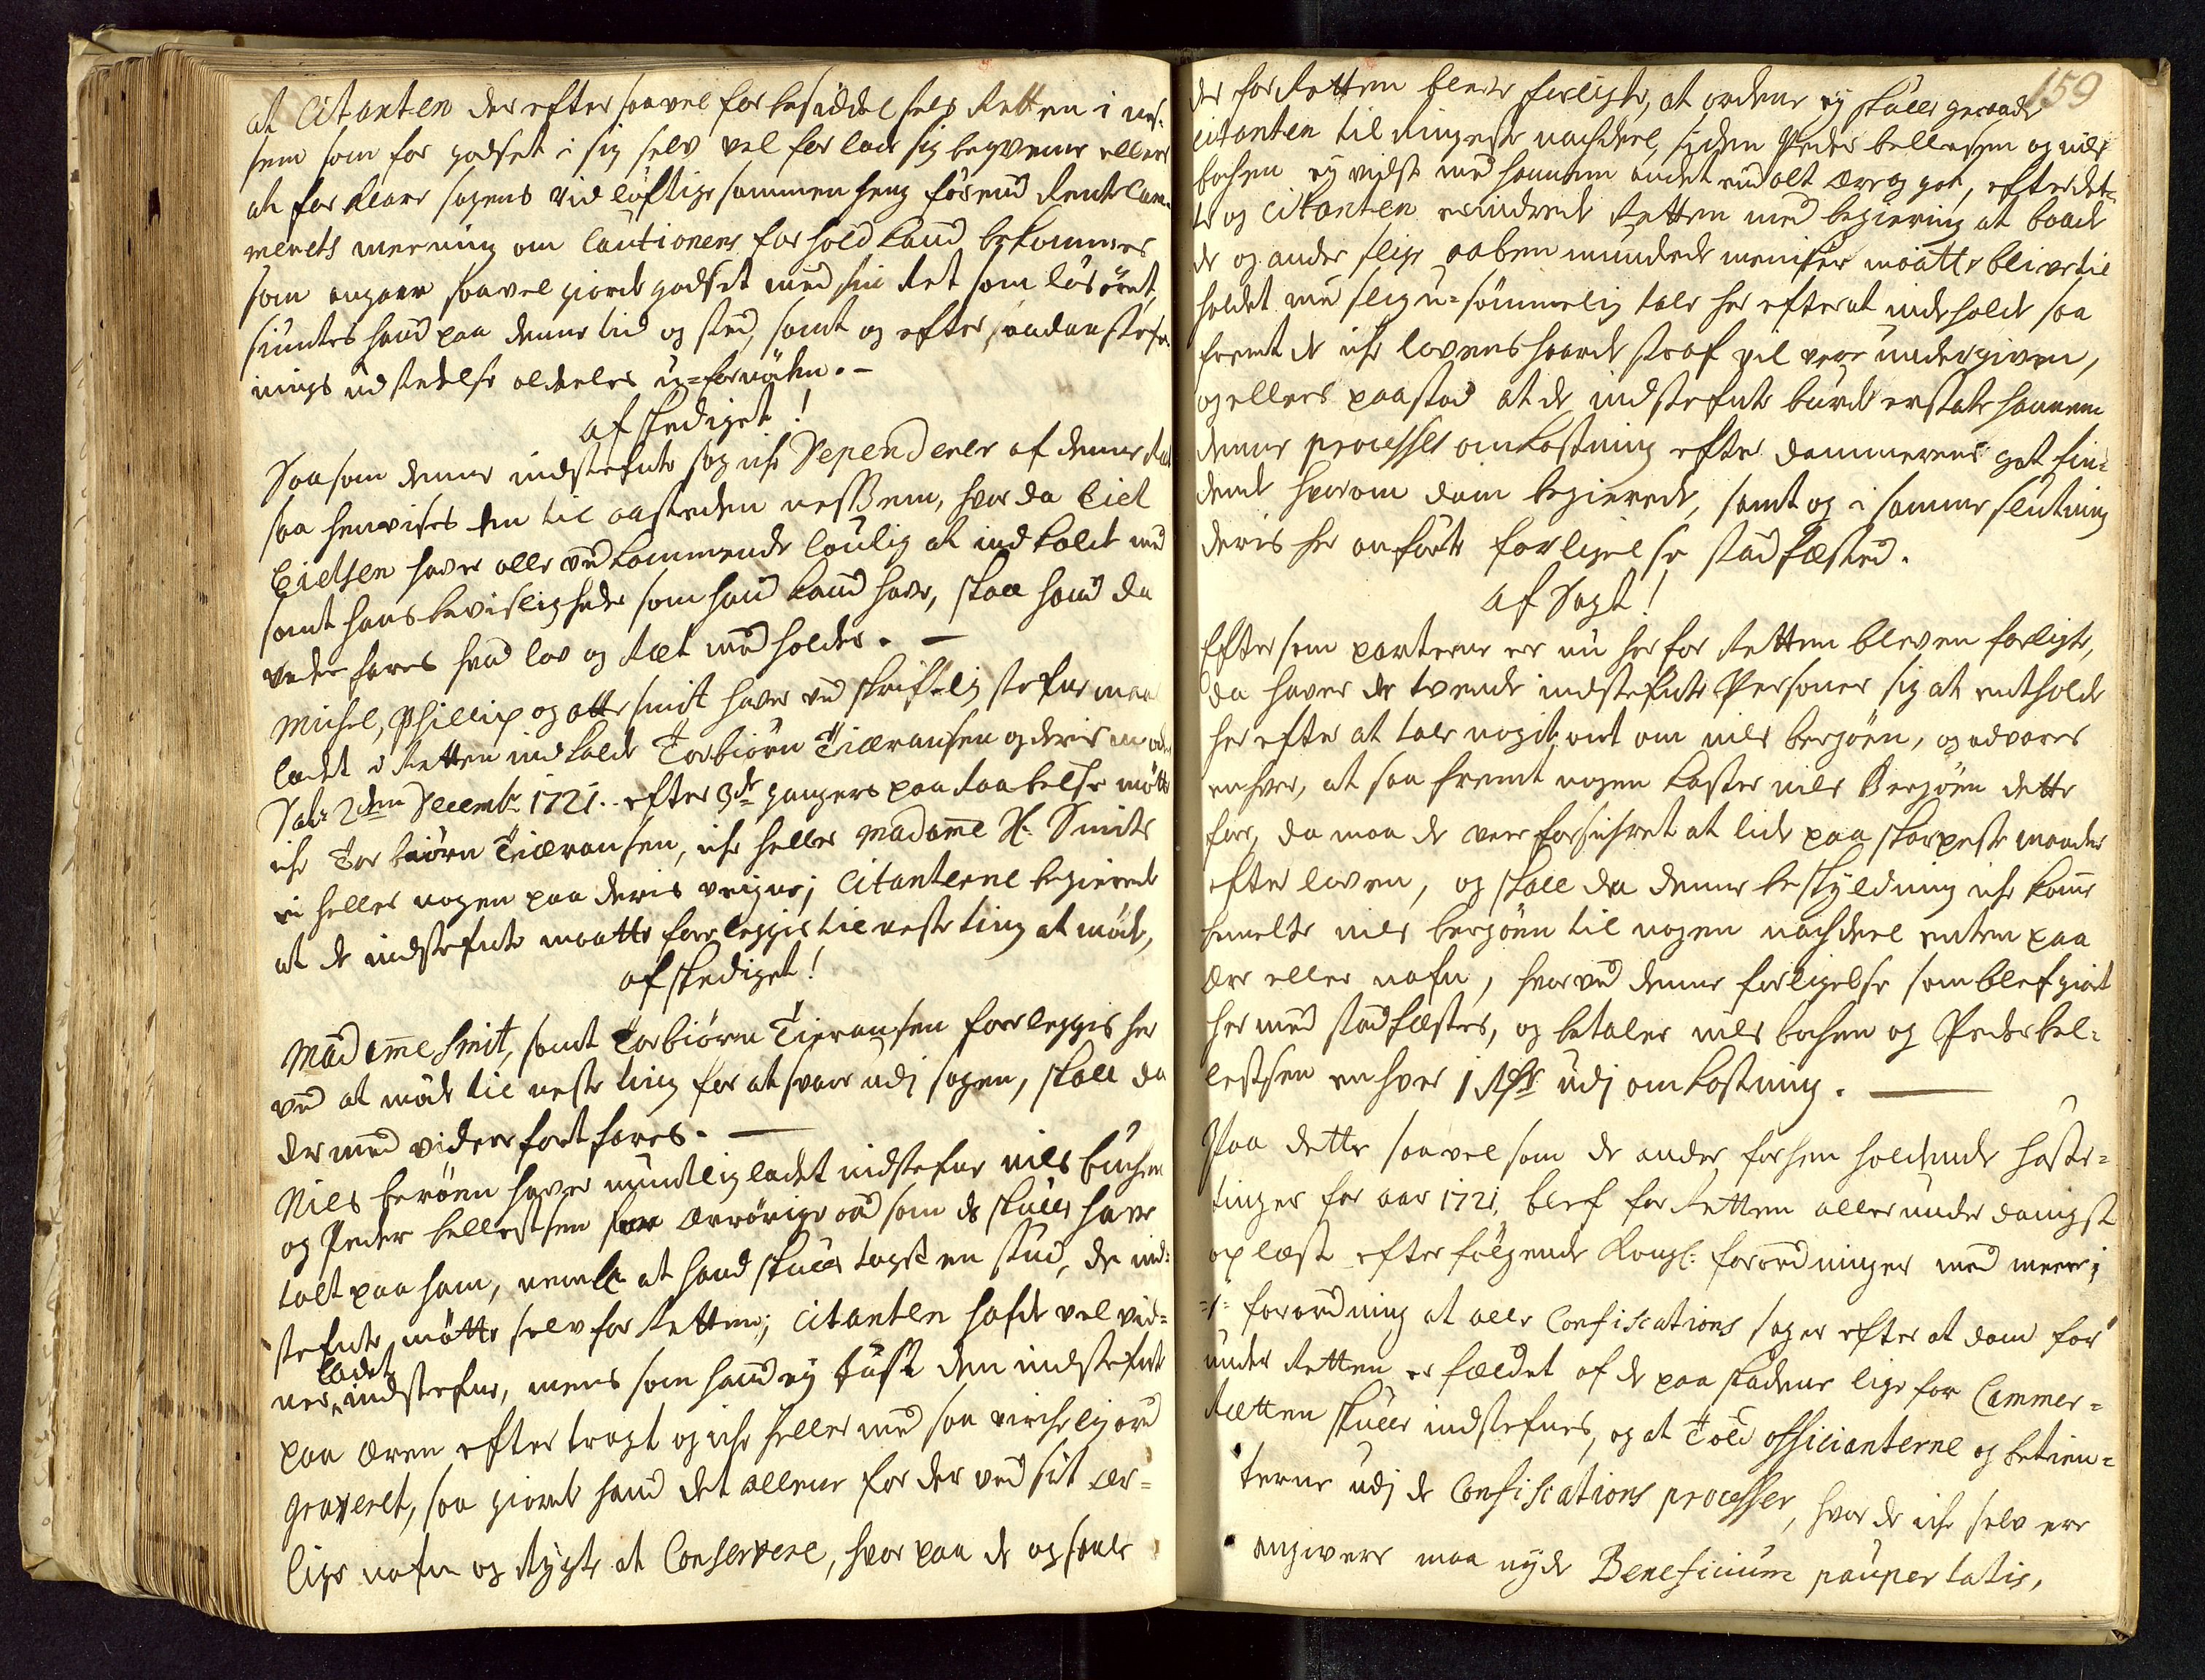 at Citanten der efter saavel for besiddelsels Retten i ves-
sem som for godset i sig selv vel forlade sig begvemme ellers
at forklare sagens vidløftige sammenheng førend Rentecam-
merets meening om Cautionens forhold kand bekommes
som angaar saavel giorde godset med sin Ret som løsøret,
siuntes hand paa denne tid og sted, samt og efter saadan stefn-
nings udstedelse aldeeles u-fornøden. -
afskediget!
Saasom denne indstefnte sag iche Dependerer af denne Ret
saa henvises den til aastedem nessem, hvor da Eiel
Eielsen haver alle vedkommende lovlig at indkalde med
samt hans bevisligheder som hand kand have, skall hand da
vederfares hvad lov og Ræt medholder. -
Michel, Phillip og otte smit haver ved skriftlig stefnemaal
ladet i Retten indkalde Torbiørn Tiæransen og deris moder
Dat: 2den Decembr 1721. efter 3de gangers paaraabelse møtte
iche Torbiørn Tiæransen, iche heller Madame H: Smits
ei heller nogen paa deris veigne; Citanterne begierede
at de indstefnte maatte forrelegges til neste ting at møde,
afskediget!
Madame Smit, samt Torbiørn Tieransen forrelegges her
ved at møde til neste ting for at svare udj sagen, skall da
dermed videre fortfares. -
Niels berøen haver mundtlig ladet indstefne nils buchen
og Peder kellessen for ærrørige ord som de skulle have
talt paa ham, nemlig at hand skulle tagst en stud, de ind-
stefnte møtte selv for Retten; Citanten hafde vel vid-
ladet
ner indstefne, mens som hand ej have den indstefnte
paa æren eftertragt og iche heller med saa virchelig ord
graveret, saa giorde hand det allene for derved sit ær-
lige nafn og Rygte at Conservere, hvorpaa de ogsaa
159
der for Retten bleve forligte, at ordene ej skulle geraade
Citanten til ringeste nachdeel, siden Peder kellessen og nils
bochen ej vidste med hannem andet end alt ære og got, efter det-
te og Citanten erindrede Retten med begiering at baade
de og andre slige aabenmundede menisker maatte blive til
holdet med slig u-sømmelig tale her efter at indeholde saa
fremt de iche lovens haarde straf vil vere undergiven,
og ellers paastod at de indstefnte burde erstate hannem
denne processes omkostning efter dommerens got fin-
dende hvorom dom begierede, samt og i samme slutning
deris her anførte forligelse stadfæsted.
Afsagt!
Eftersom parterne er nu her for Retten bleven forligte,
da haver de tvende indstefnte Personer sig at entholde
her efter at tale noget ont om nils bergøen, og advares
enhver, at saa fremt nogen kaster nils Bergøen dette
for, da maa de vere forsichret at lide paa skarpeste maader
efter loven, og skall da denne beskyldning iche komme
bemelte nils bergøen til nogen nachdeel enten paa
ære eller nafn, hvorved denne forligelse som blef giort
hermed stadfæstes, og betaler nils bochen og Peder kel-
lessen enhver 1 Rdr udj omkostning. -
Paa dette saavel som de andre forhen holdende høste-
tinger for aar 1721, blef for Retten allerunderdanigst
oplæst efterfølgende Kongl: forordninger med meere;
=1= forordning at alle Confiscations sager efter at dom for
under Retten er fældet af de paa stederne lige for Cammer-
Rætten skulle indstefnes, og at Told officianterne og betien-
terne udj de Confiscations processer, hvor de iche selv ere
angivere maa nyde Beneficium paupertatis,